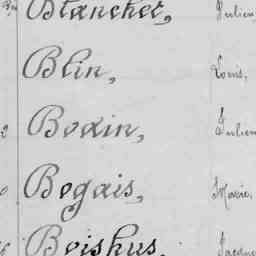 Blanchet, Julien
Blin, Louis,
Bodin, Julien
Bogais, Marie,
Boishus, Jacques